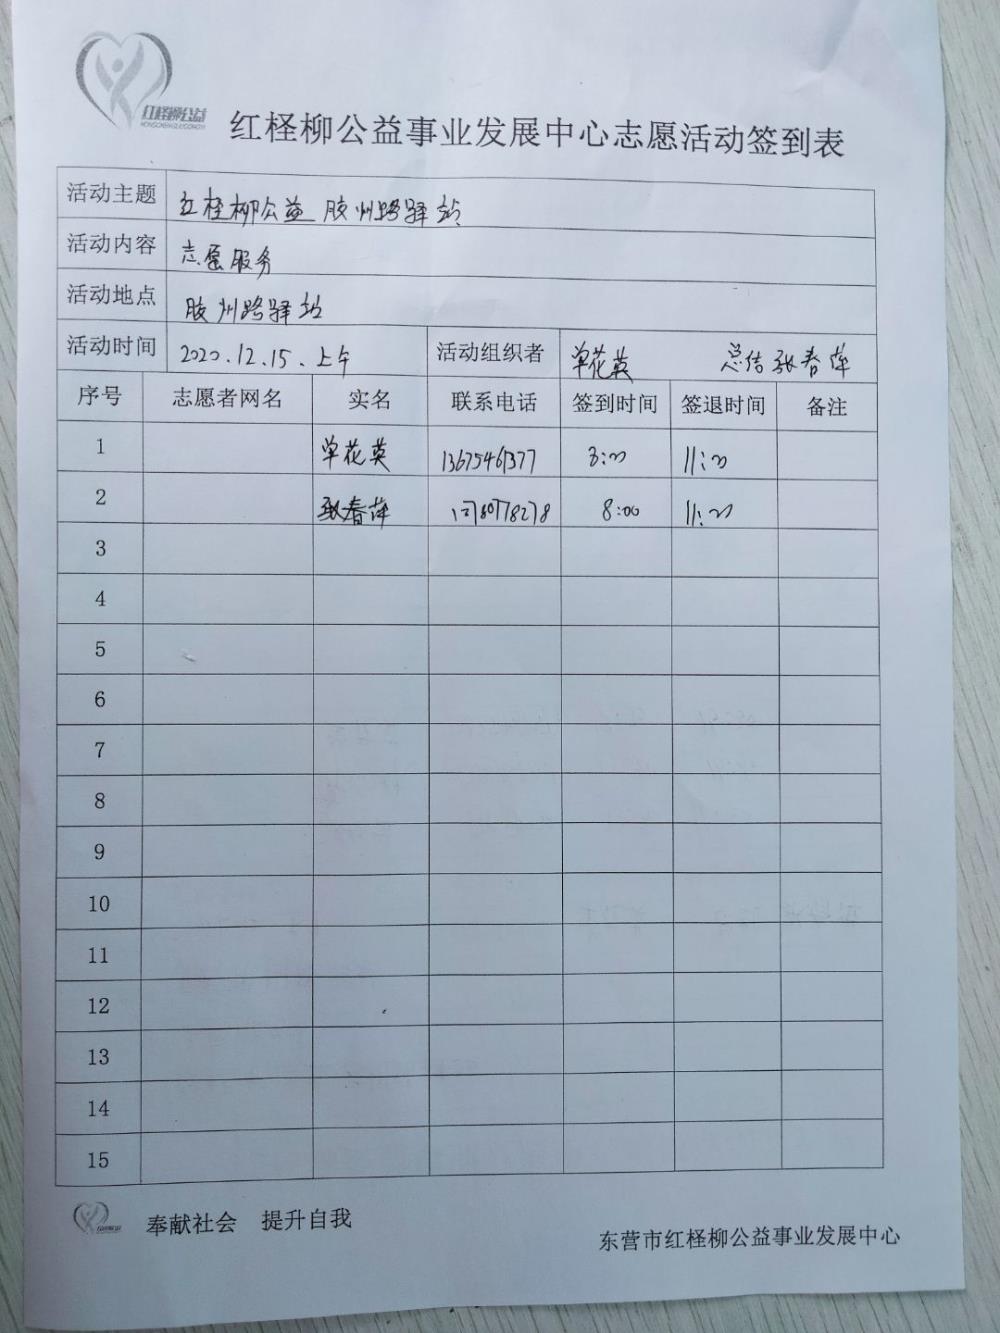 红柽柳公益
红柽柳公益事业发展中心志愿活动签到表
活动主题 红柽柳公益 胶州路驿站
活动内容 志愿服务
活动地点 胶州路驿站
活动时间 2020.12.15、上午 活动组织者 单花英 总结 张春萍
序号 志愿者网名 实名 联系电话 签到时间 签退时间 备注
1 单花英 13675461377 8:00 11:00
2 张春萍 8:00 11:00
3
4
5
6
7
8
9
10
11
12
13
14
15
奉献社会 提升自我
东营市红柽柳公益事业发展中心